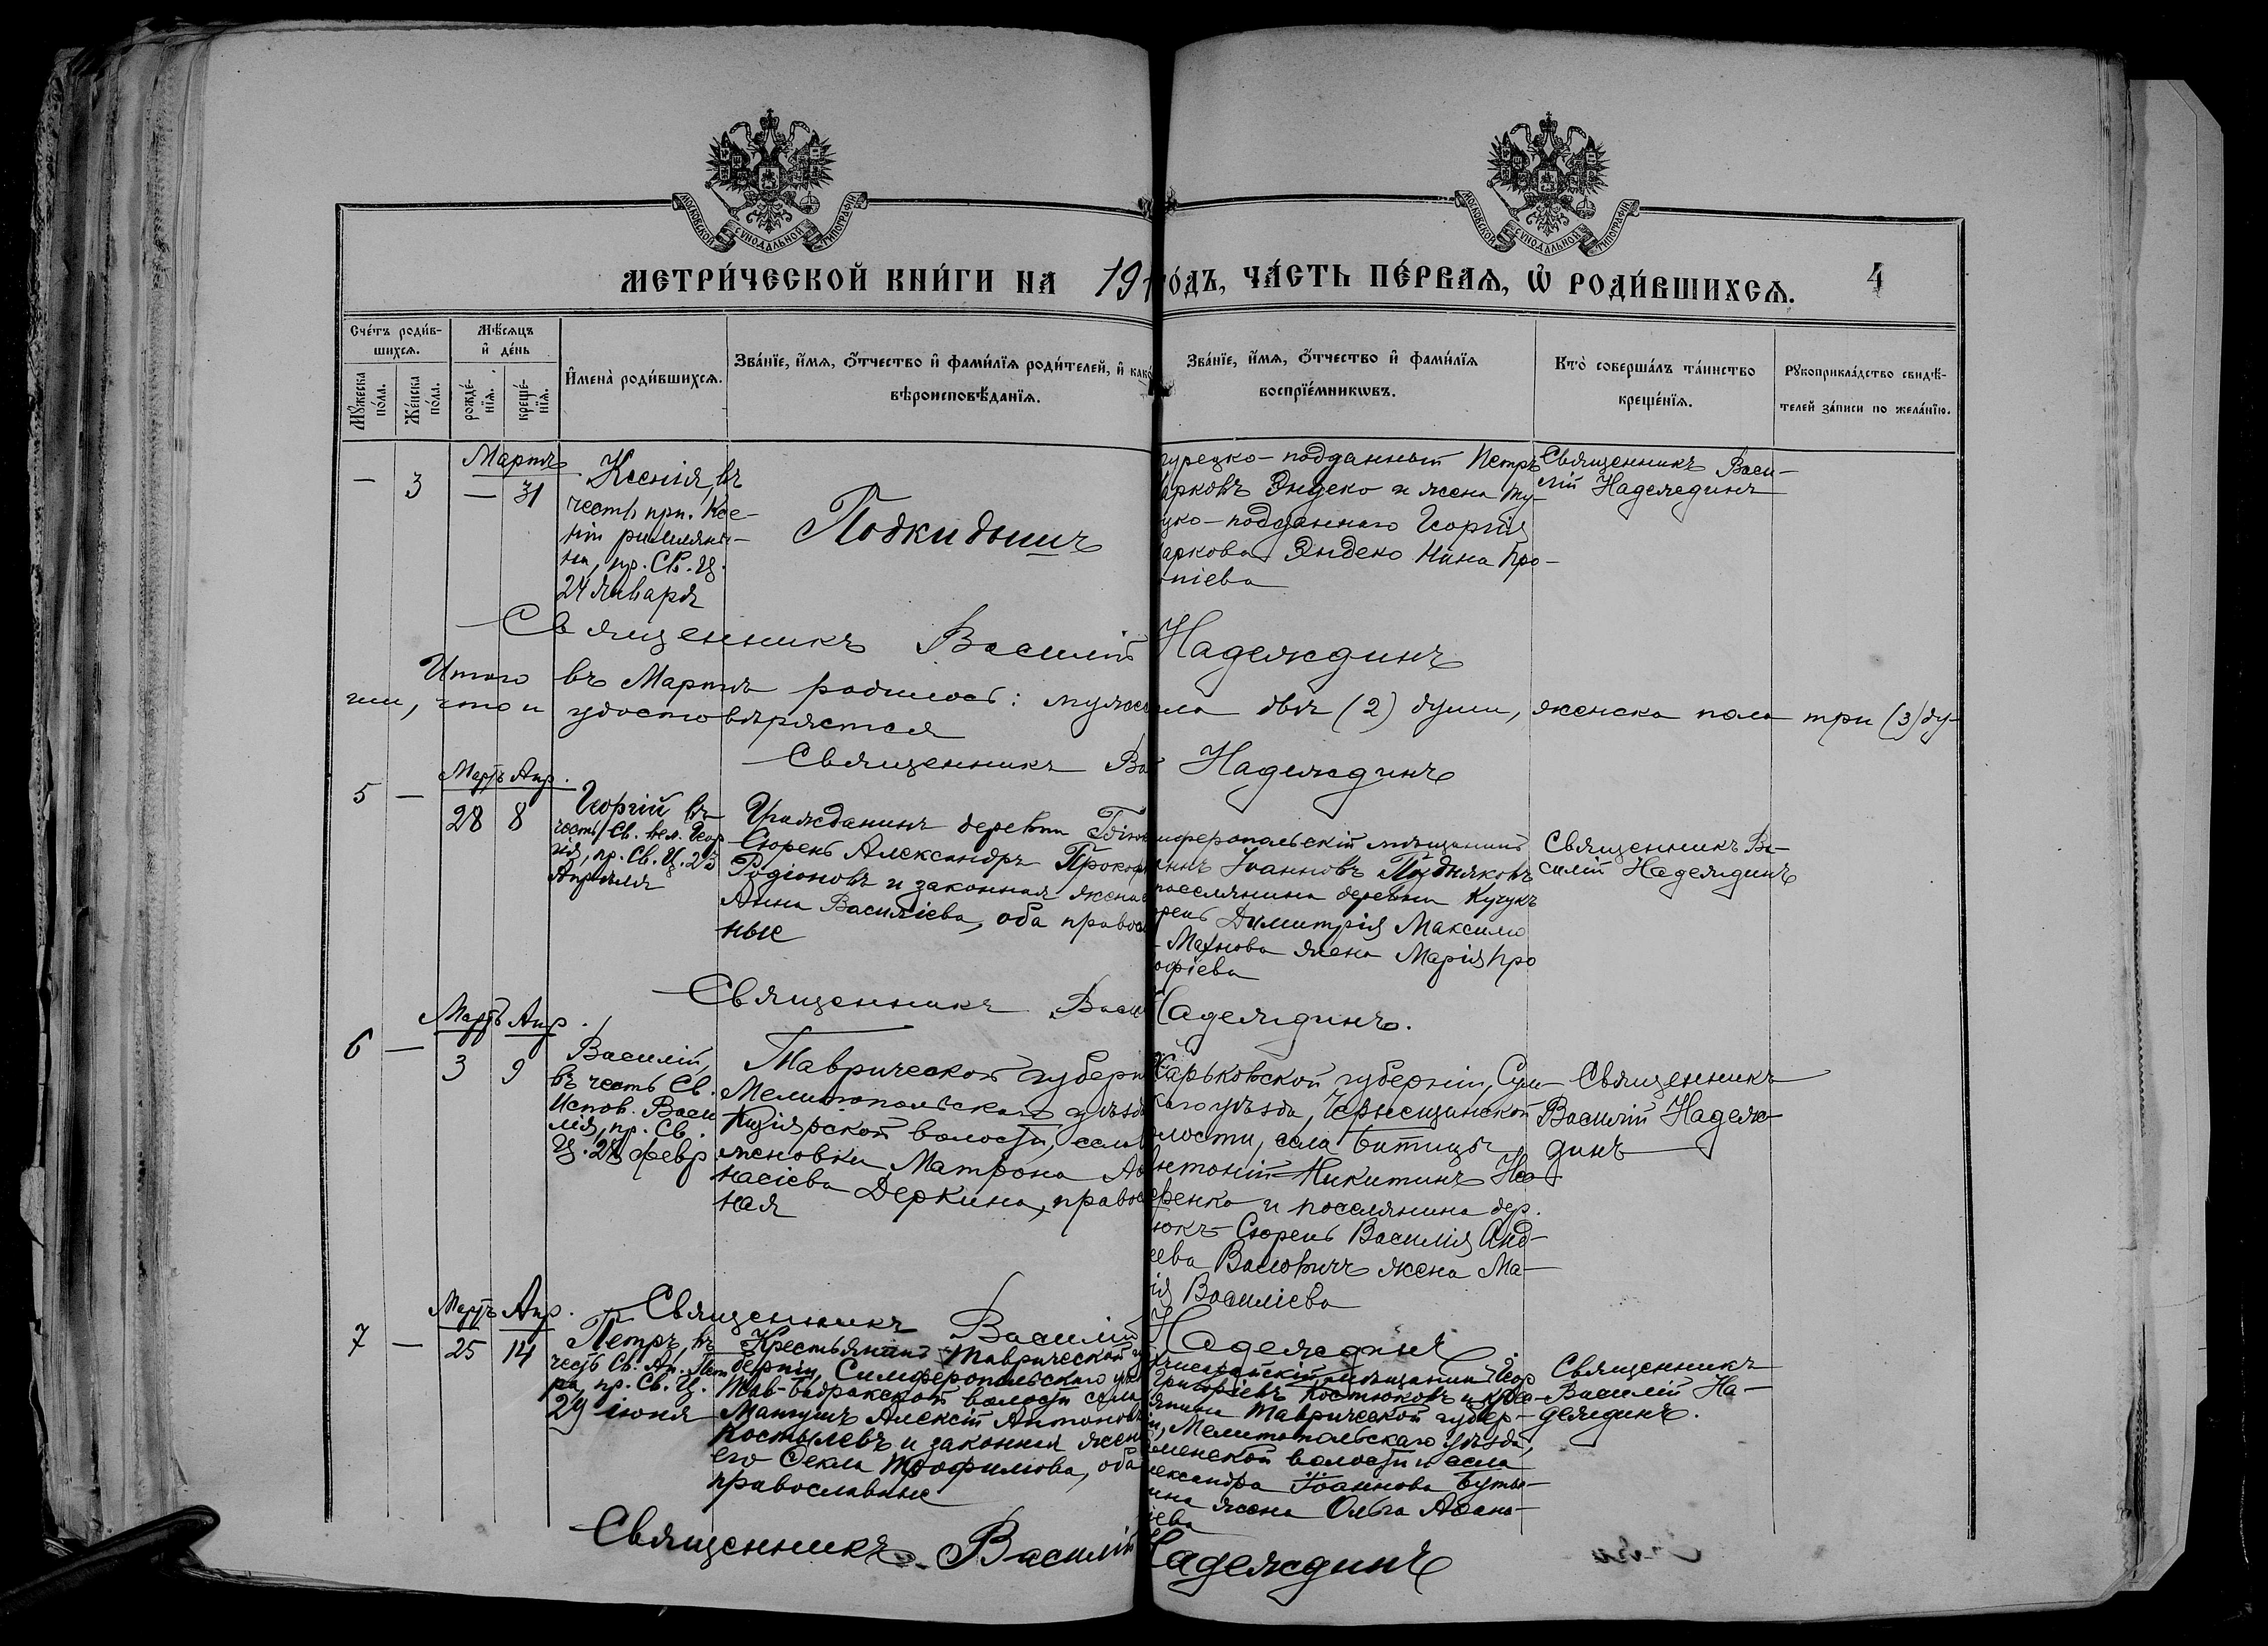 МОСКОВСКОЙ СѴНОДАЛЬНОЙ ТИПОГРАФІИ
МОСКОВСКОЙ СѴНОДАЛЬНОЙ ТИПОГРАФІИ
МЕТРИ́ЧЕСКОЙ КНИ́ГИ НА 19
О́ДЪ, ЧА́СТЬ ПЕ́РВАѦ, Ѡ҆ РОДИ́ВШИХСѦ.
4
Сче́тъ роди́в-
шихсѧ.
Мꙋ́жеска по́ла.
Же́нска по́ла.
Мѣ́сѧцъ
и҆ де́нь
рожде́-
нїѧ.
креще́-
нїѧ.
И҆мена̀ роди́вшихсѧ.
Зва́нїе, и҆́мѧ, ѻ҆́тчество и҆ фами́лїѧ роди́телей, и҆ како́
вѣроисповѣ́данїѧ.
Зва́нїе, и҆́мѧ, ѻ҆́тчество и҆ фами́лїѧ
воспрїе́мникωвъ.
Кто̀ соверша́лъ та́инство
креще́нїѧ.
Рꙋкоприкла́дство свидѣ́-
телей за́писи по жела́нїю.
Мартъ
— 3 — 31
Ксенія, въ
честь прп. Ксе-
ніи римляны-
ни, пр. Св. Ц.
24 Января
Подкидышъ
турецко-подданный Петръ
арковъ Эндеко и жена ту-
цко-подданнаго Георгія
аркова Эндеко Нина Про-
опіева
Священникъ Васи-
лій Надеждинъ
Священникъ Василій Надеждинъ
Итого въ Мартѣ родилось: мужс ла двѣ (2) души, женска пола три (3) ду-
ши, что и удостовѣряется
Священникъ Ва Надеждинъ
Мартъ Апр.
5 — 28 8
Георгій въ
честь Св. вел. Геор
гія, пр. Св. Ц. 23
Апрѣля
Гражданинъ деревни Бію
Сюрень Александръ Прокоф
Родіоновъ и законная жена
Анна Василіева, оба правос
ные
имферопольскій мѣщанинъ
аннъ Іоанновъ Поздняковъ
поселянина деревни Кучукъ
рень Димитрія Максимо
Махнова жена Марія Про
офіева
Священникъ Ва-
силій Надеждинъ
Священникъ Васи Надеждинъ.
Мартъ Апр.
6 — 3 9
Василій,
въ честь Св.
Испов. Васи
лія, пр. Св.
Ц. 28 февр.
Таврической губерн
Мелитопольскаго уѣзда
Кизіярской волости, села
меновки Матрона Аѳ
насіева Деркина, правос
ная
Харьковской губерніи, Сум-
скаго уѣзда, Чернещинской
олости, села Битицы
Антоній Никитинъ
ренко и поселянина дер.
юкъ-Сюрень Василія Анд-
еева Васовичъ жена Ма-
ія Василіева
Священникъ
Василій Надеж-
динъ
Священникъ Василій Надеждинъ
Мартъ Апр.
7 — 25 14
Петръ, въ
честь Св. Ап. Пет
ра, пр. Св. Ц.
29 июня
Крестьянинъ Таврической гу
берніи, Симферопольскаго уѣз
Тав-Бадракской волости села
Мангушъ Алексій Антоновъ
Костылевъ и законная жена
его Ѳекла Трофимова, оба
православные
хчисарайскій мѣщанинъ Геор
Григоріевъ Костюковъ и кре-
янина Таврической губер-
и, Мелитопольскаго уѣзда,
менской волости и села
лександра Іоаннова Буты-
ина жена Ольга Аѳана-
іева
Священникъ
Василій На-
деждинъ.
Священникъ Василій Надеждинъ